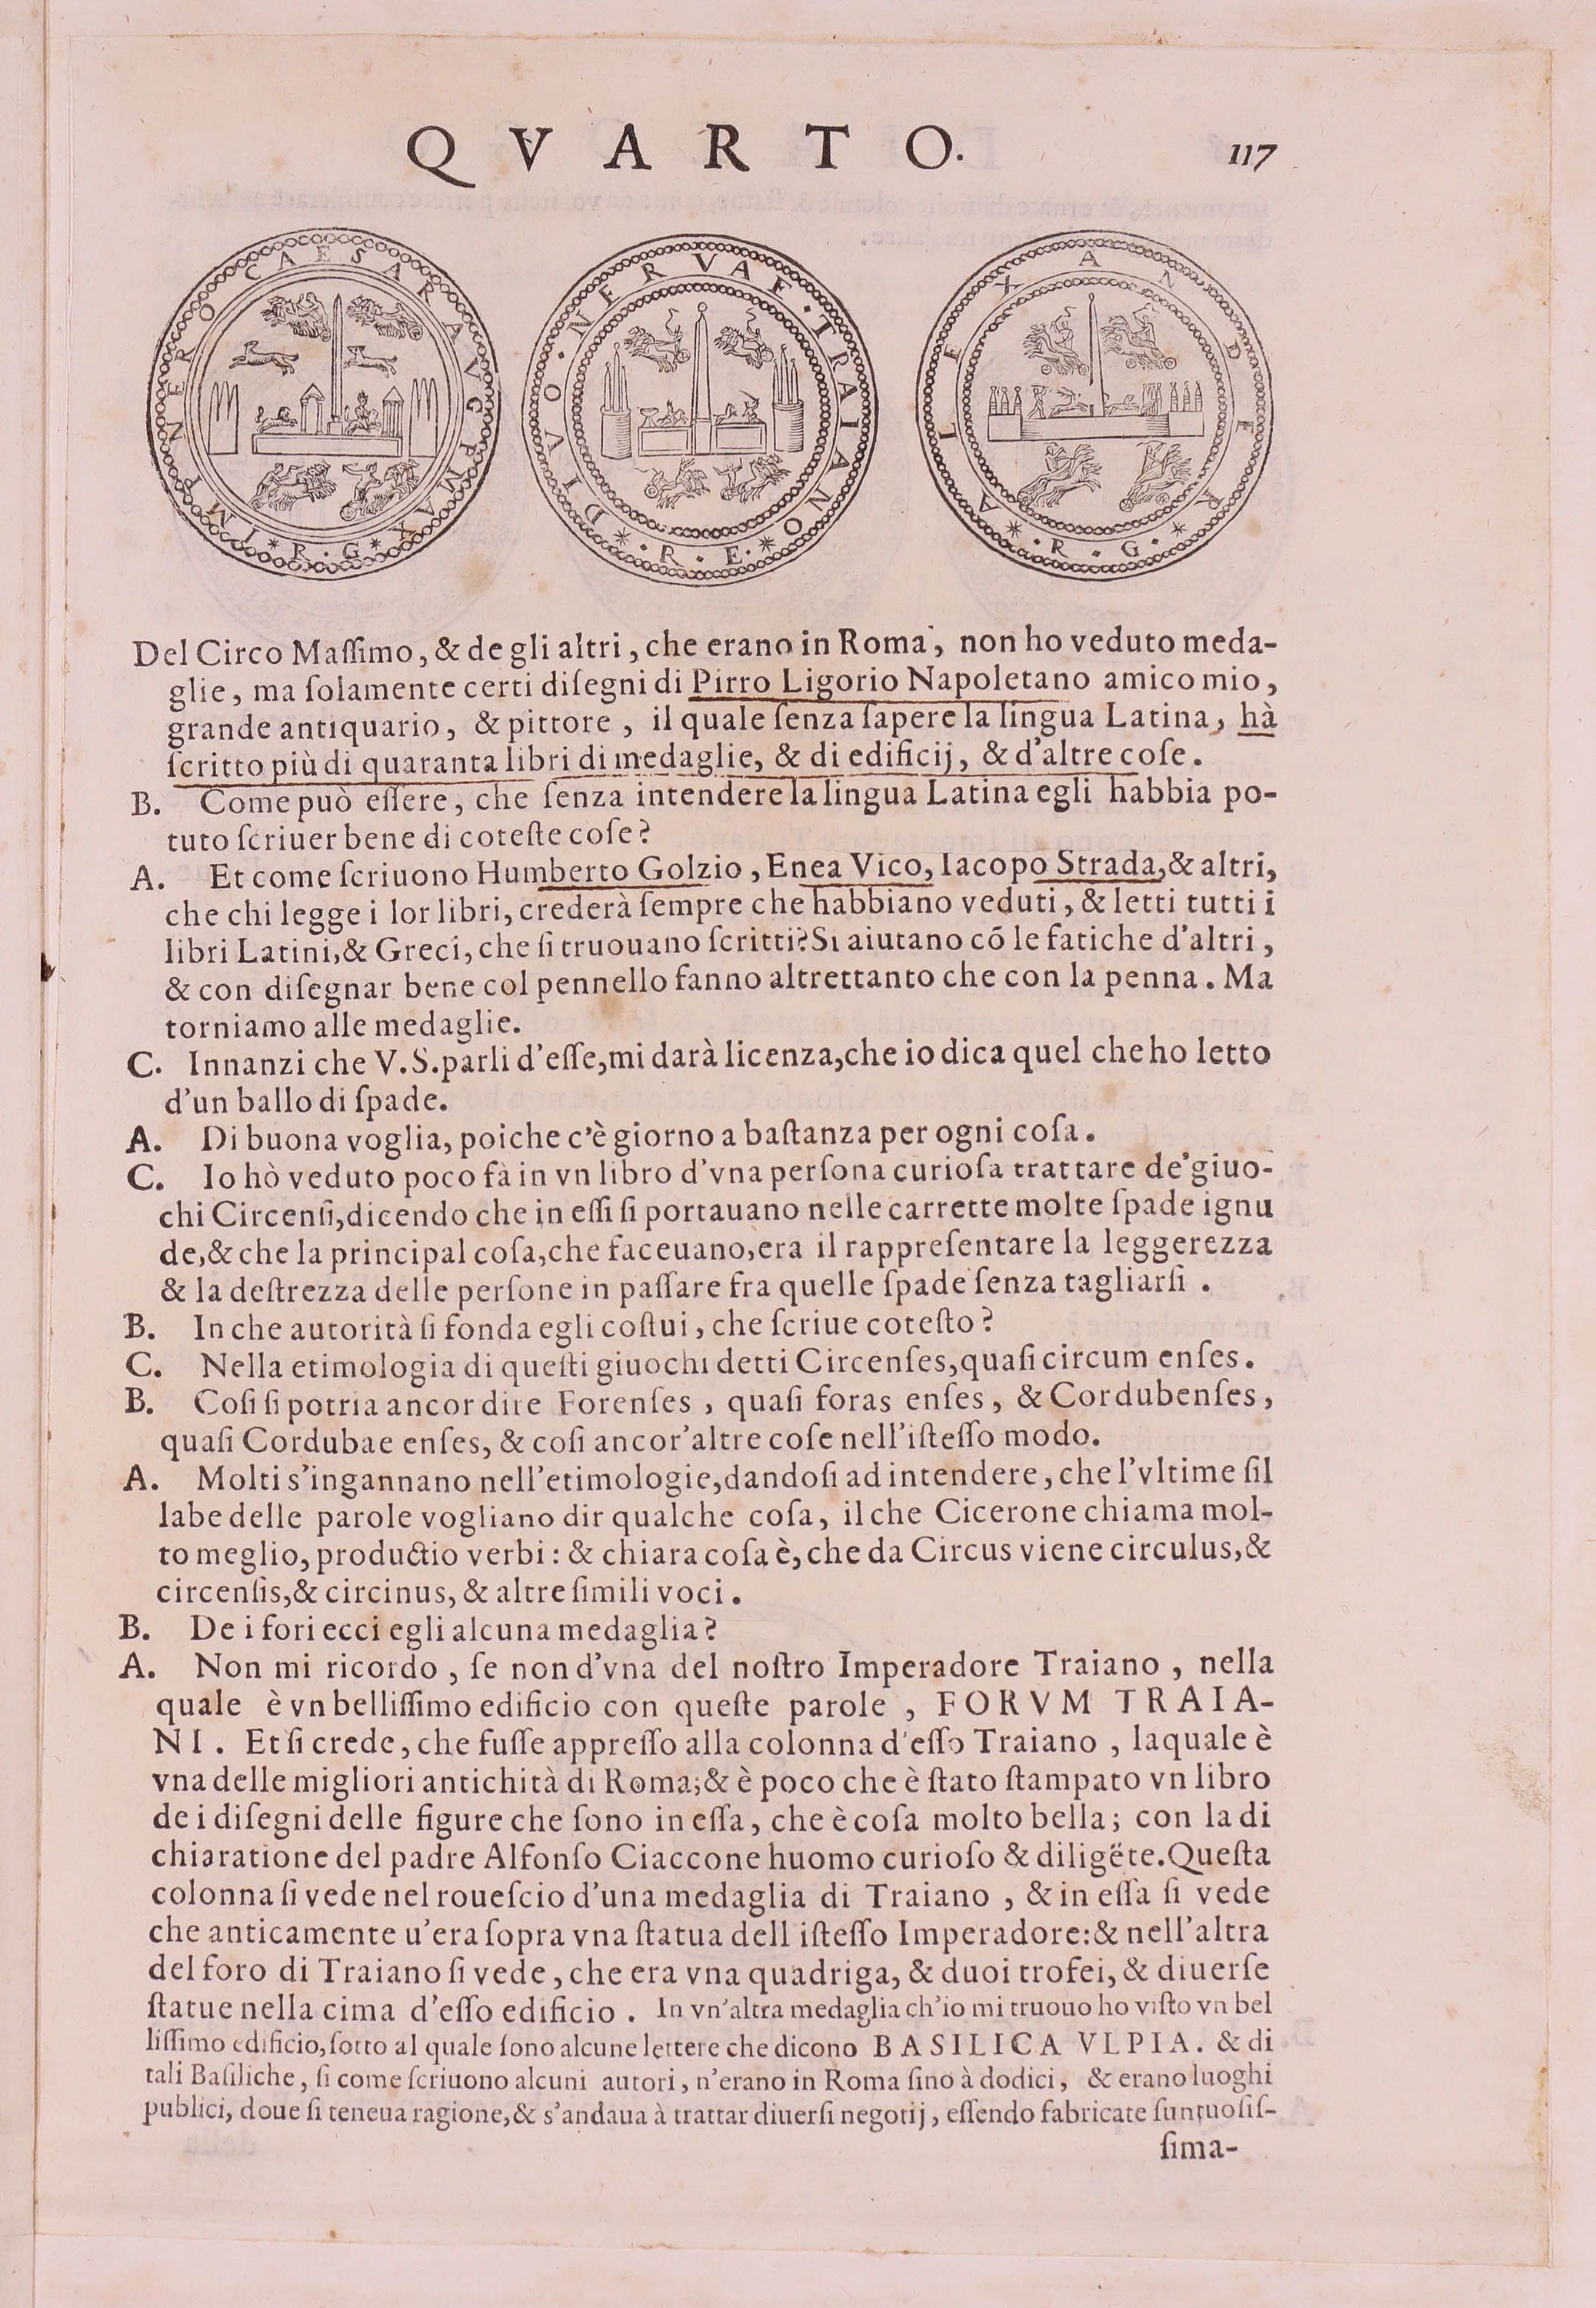 QVARTO.
117
IMP NERO CAESAR AVG P MAX * R · G *
DIVO · NERVAE · TRAIANO * · R · E · *
ALEXANDRI * · R · G · *
Del Circo Maſſimo, & de gli altri, che erano in Roma, non ho veduto meda-
glie, ma ſolamente certi diſegni di Pirro Ligorio Napoletano amico mio,
grande antiquario, & pittore, il quale ſenza ſapere la lingua Latina, hà
ſcritto più di quaranta libri di medaglie, & di edificij, & d'altre coſe.
B. Come può eſſere, che ſenza intendere la lingua Latina egli habbia po-
tuto ſcriuer bene di coteſte coſe?
A. Et come ſcriuono Humberto Golzio, Enea Vico, Iacopo Strada, & altri,
che chi legge i lor libri, crederà ſempre che habbiano veduti, & letti tutti i
libri Latini, & Greci, che ſi truouano ſcritti? Si aiutano cõ le fatiche d'altri,
& con diſegnar bene col pennello fanno altrettanto che con la penna. Ma
torniamo alle medaglie.
C. Innanzi che V.S. parli d'eſſe, mi darà licenza, che io dica quel che ho letto
d'un ballo di ſpade.
A. Di buona voglia, poiche c'è giorno a baſtanza per ogni coſa.
C. Io hò veduto poco fà in vn libro d'vna perſona curioſa trattare de' giuo-
chi Circenſi, dicendo che in eſſi ſi portauano nelle carrette molte ſpade ignu
de, & che la principal coſa, che faceuano, era il rappreſentare la leggerezza
& la deſtrezza delle perſone in paſſare fra quelle ſpade ſenza tagliarſi.
B. In che autorità ſi fonda egli coſtui, che ſcriue coteſto?
C. Nella etimologia di queſti giuochi detti Circenſes, quaſi circum enſes.
B. Coſi ſi potria ancor dire Forenſes, quaſi foras enſes, & Cordubenſes,
quaſi Cordubae enſes, & coſi ancor'altre coſe nell'iſteſſo modo.
A. Molti s'ingannano nell'etimologie, dandoſi ad intendere, che l'vltime ſil
labe delle parole vogliano dir qualche coſa, il che Cicerone chiama mol-
to meglio, productio verbi: & chiara coſa è, che da Circus viene circulus, &
circenſis, & circinus, & altre ſimili voci.
B. De i fori ecci egli alcuna medaglia?
A. Non mi ricordo, ſe non d'vna del noſtro Imperadore Traiano, nella
quale è vn belliſſimo edificio con queſte parole, FORVM TRAIA-
NI. Et ſi crede, che fuſſe appreſſo alla colonna d'eſſo Traiano, laquale è
vna delle migliori antichità di Roma; & è poco che è ſtato ſtampato vn libro
de i diſegni delle figure che ſono in eſſa, che è coſa molto bella; con la di
chiaratione del padre Alfonſo Ciaccone huomo curioſo & diligẽte. Queſta
colonna ſi vede nel roueſcio d'una medaglia di Traiano, & in eſſa ſi vede
che anticamente u'era ſopra vna ſtatua dell iſteſſo Imperadore: & nell'altra
del foro di Traiano ſi vede, che era vna quadriga, & duoi trofei, & diuerſe
ſtatue nella cima d'eſſo edificio. In vn'altra medaglia ch'io mi truouo ho viſto vn bel
liſſimo edificio, ſotto al quale ſono alcune lettere che dicono BASILICA VLPIA. & di
tali Baſiliche, ſi come ſcriuono alcuni autori, n'erano in Roma ſino à dodici, & erano luoghi
publici, doue ſi teneua ragione, & s'andaua à trattar diuerſi negotij, eſſendo fabricate ſuntuoſiſ-
ſima-